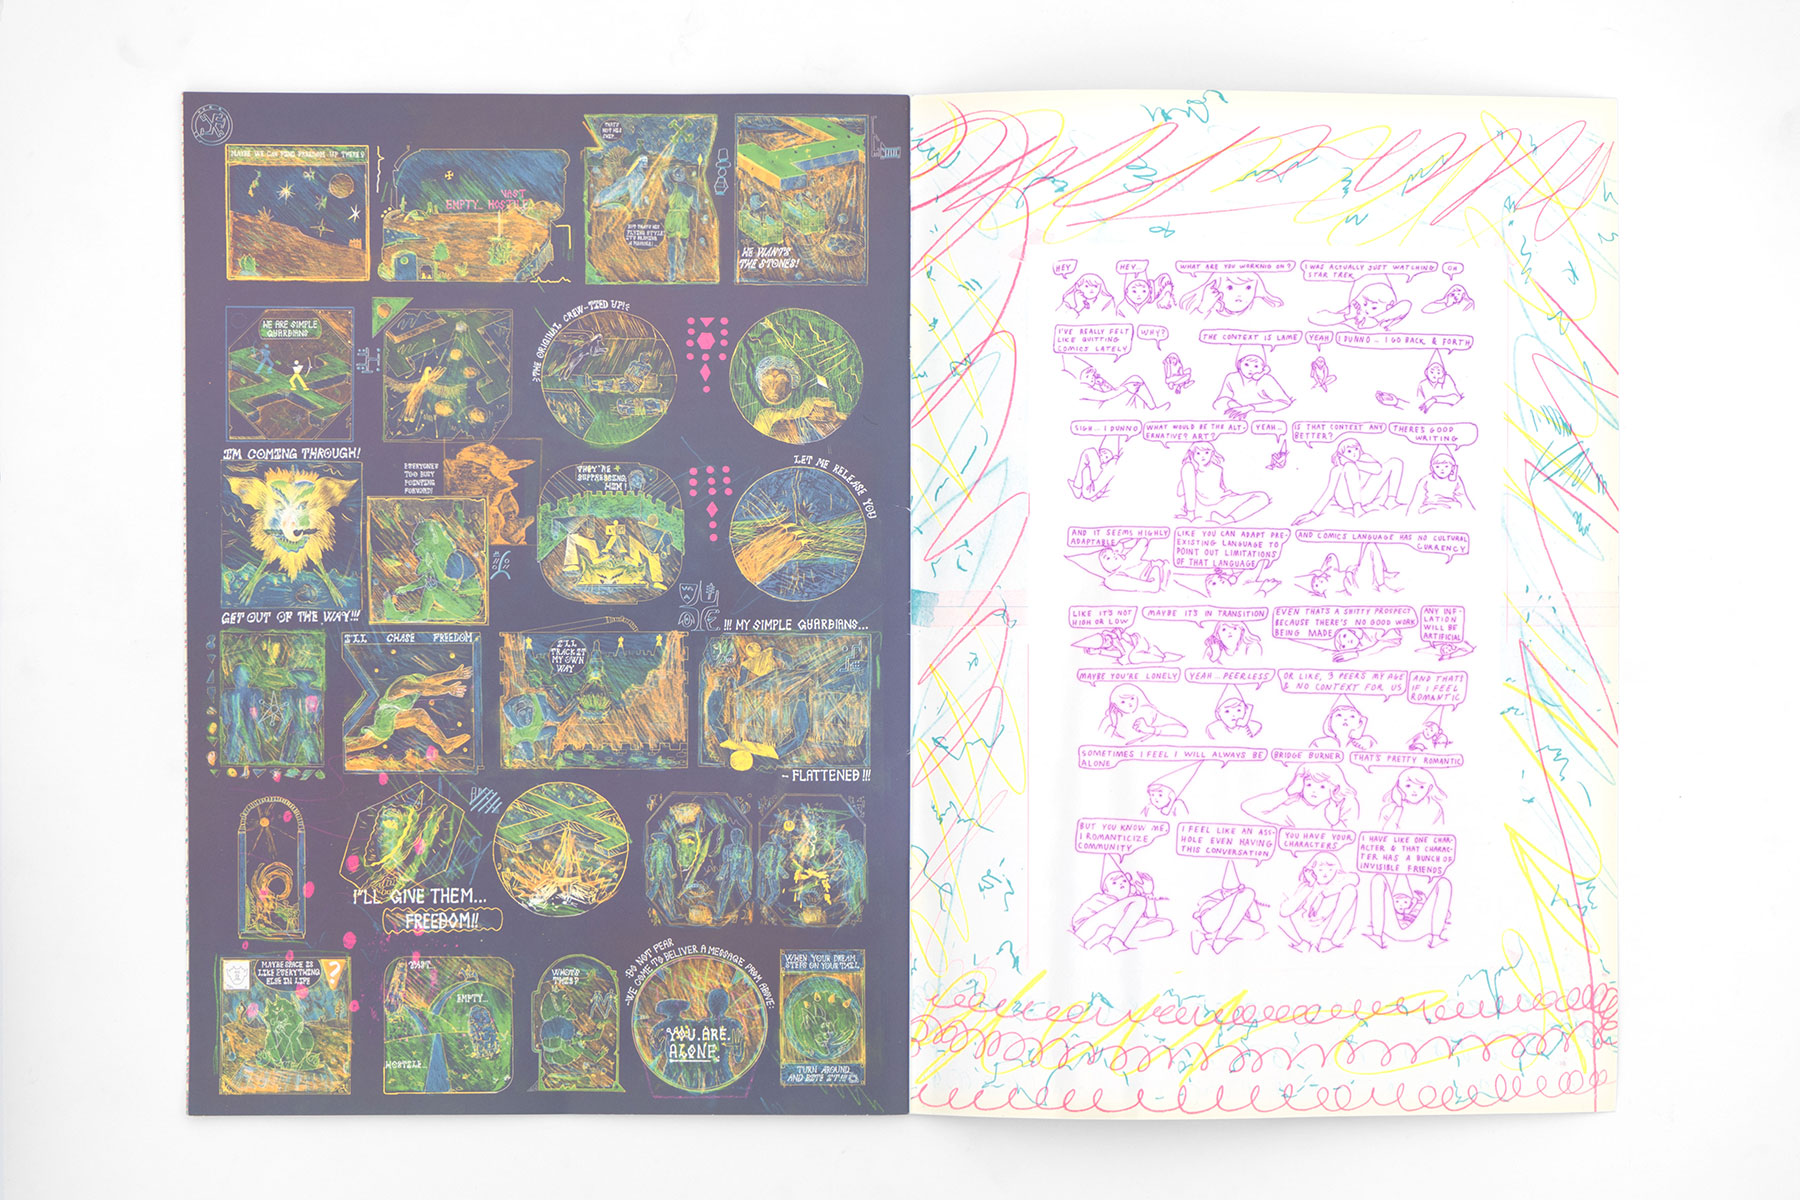 MAYBE WE CAN FIND FREEDOM UP THERE?
VAST
EMPTY... HOSTILE
THAT'S
NOT HIS
WE WANTS
THE STONES!
WE ARE SIMPLE
GUARDIANS
THE ORIGINAL CREW-TIED UP!
I'M COMING THROUGH!
GET OUT OF THE WAY!!!
EVERYONE'S
TOO BUSY
POINTING
FORWARD!
THEY'RE
SUPPRESSING
HIM!
LET ME RELEASE YOU
I'LL CHASE FREEDOM
I'LL
TRACK IT
MY OWN
WAY
!!! MY SIMPLE GUARDIANS...
- FLATTENED!!!
I'LL GIVE THEM...
FREEDOM!!
MAYBE SPACE IS
LIKE EVERYTHING
ELSE IN LIFE
?
VAST
EMPTY
HOSTILE...
WHO'S
THIS?
DO NOT FEAR
WE COME TO DELIVER A MESSAGE FROM ABOVE:
YOU ARE
ALONE
WHEN YOUR DREAM
STEPS ON YOUR TAIL
TURN AROUND
AND BITE IT!!!
HEY
HEY..
WHAT ARE YOU WORKNIG ON?
I WAS ACTUALLY JUST WATCHING
STAR TREK
OH
I'VE REALLY FELT
LIKE QUITTING
COMICS LATELY
WHY?
THE CONTEXT IS LAME
YEAH
I DUNNO... I GO BACK & FORTH
SIGH... I DUNNO
WHAT WOULD BE THE ALT-
ERNATIVE? ART?
YEAH...
IS THAT CONTEXT ANY
BETTER?
THERES GOOD
WRITING
AND IT SEEMS HIGHLY
ADAPTABLE
LIKE YOU CAN ADAPT PRE-
EXISTING LANGUAGE TO
POINT OUT LIMITATIONS
OF THAT LANGUAGE
AND COMICS LANGUAGE HAS NO CULTURAL
CURRENCY
LIKE IT'S NOT
HIGH OR LOW
MAYBE IT'S IN TRANSITION
EVEN THAT'S A SHITTY PROSPECT
BECAUSE THERE'S NO GOOD WORK
BEING MADE
ANY INF-
LATION
WILL BE
ARTIFICIAL
MAYBE YOU'RE LONELY
YEAH...PEERLESS
OR LIKE, 3 PEERS MY AGE
& NO CONTEXT FOR US
AND THAT'S
IF I FEEL
ROMANTIC
SOMETIMES I FEEL I WILL ALWAYS BE
ALONE
BRIDGE BURNER
THAT'S PRETTY ROMANTIC
BUT YOU KNOW ME,
I ROMANTICIZE
COMMUNITY
I FEEL LIKE AN ASS-
HOLE EVEN HAVING
THIS CONVERSATION
YOU HAVE YOUR
CHARACTERS
I HAVE LIKE ONE CHAR-
ACTER & THAT CHARAC-
TER HAS A BUNCH OF
INVISIBLE FRIENDS